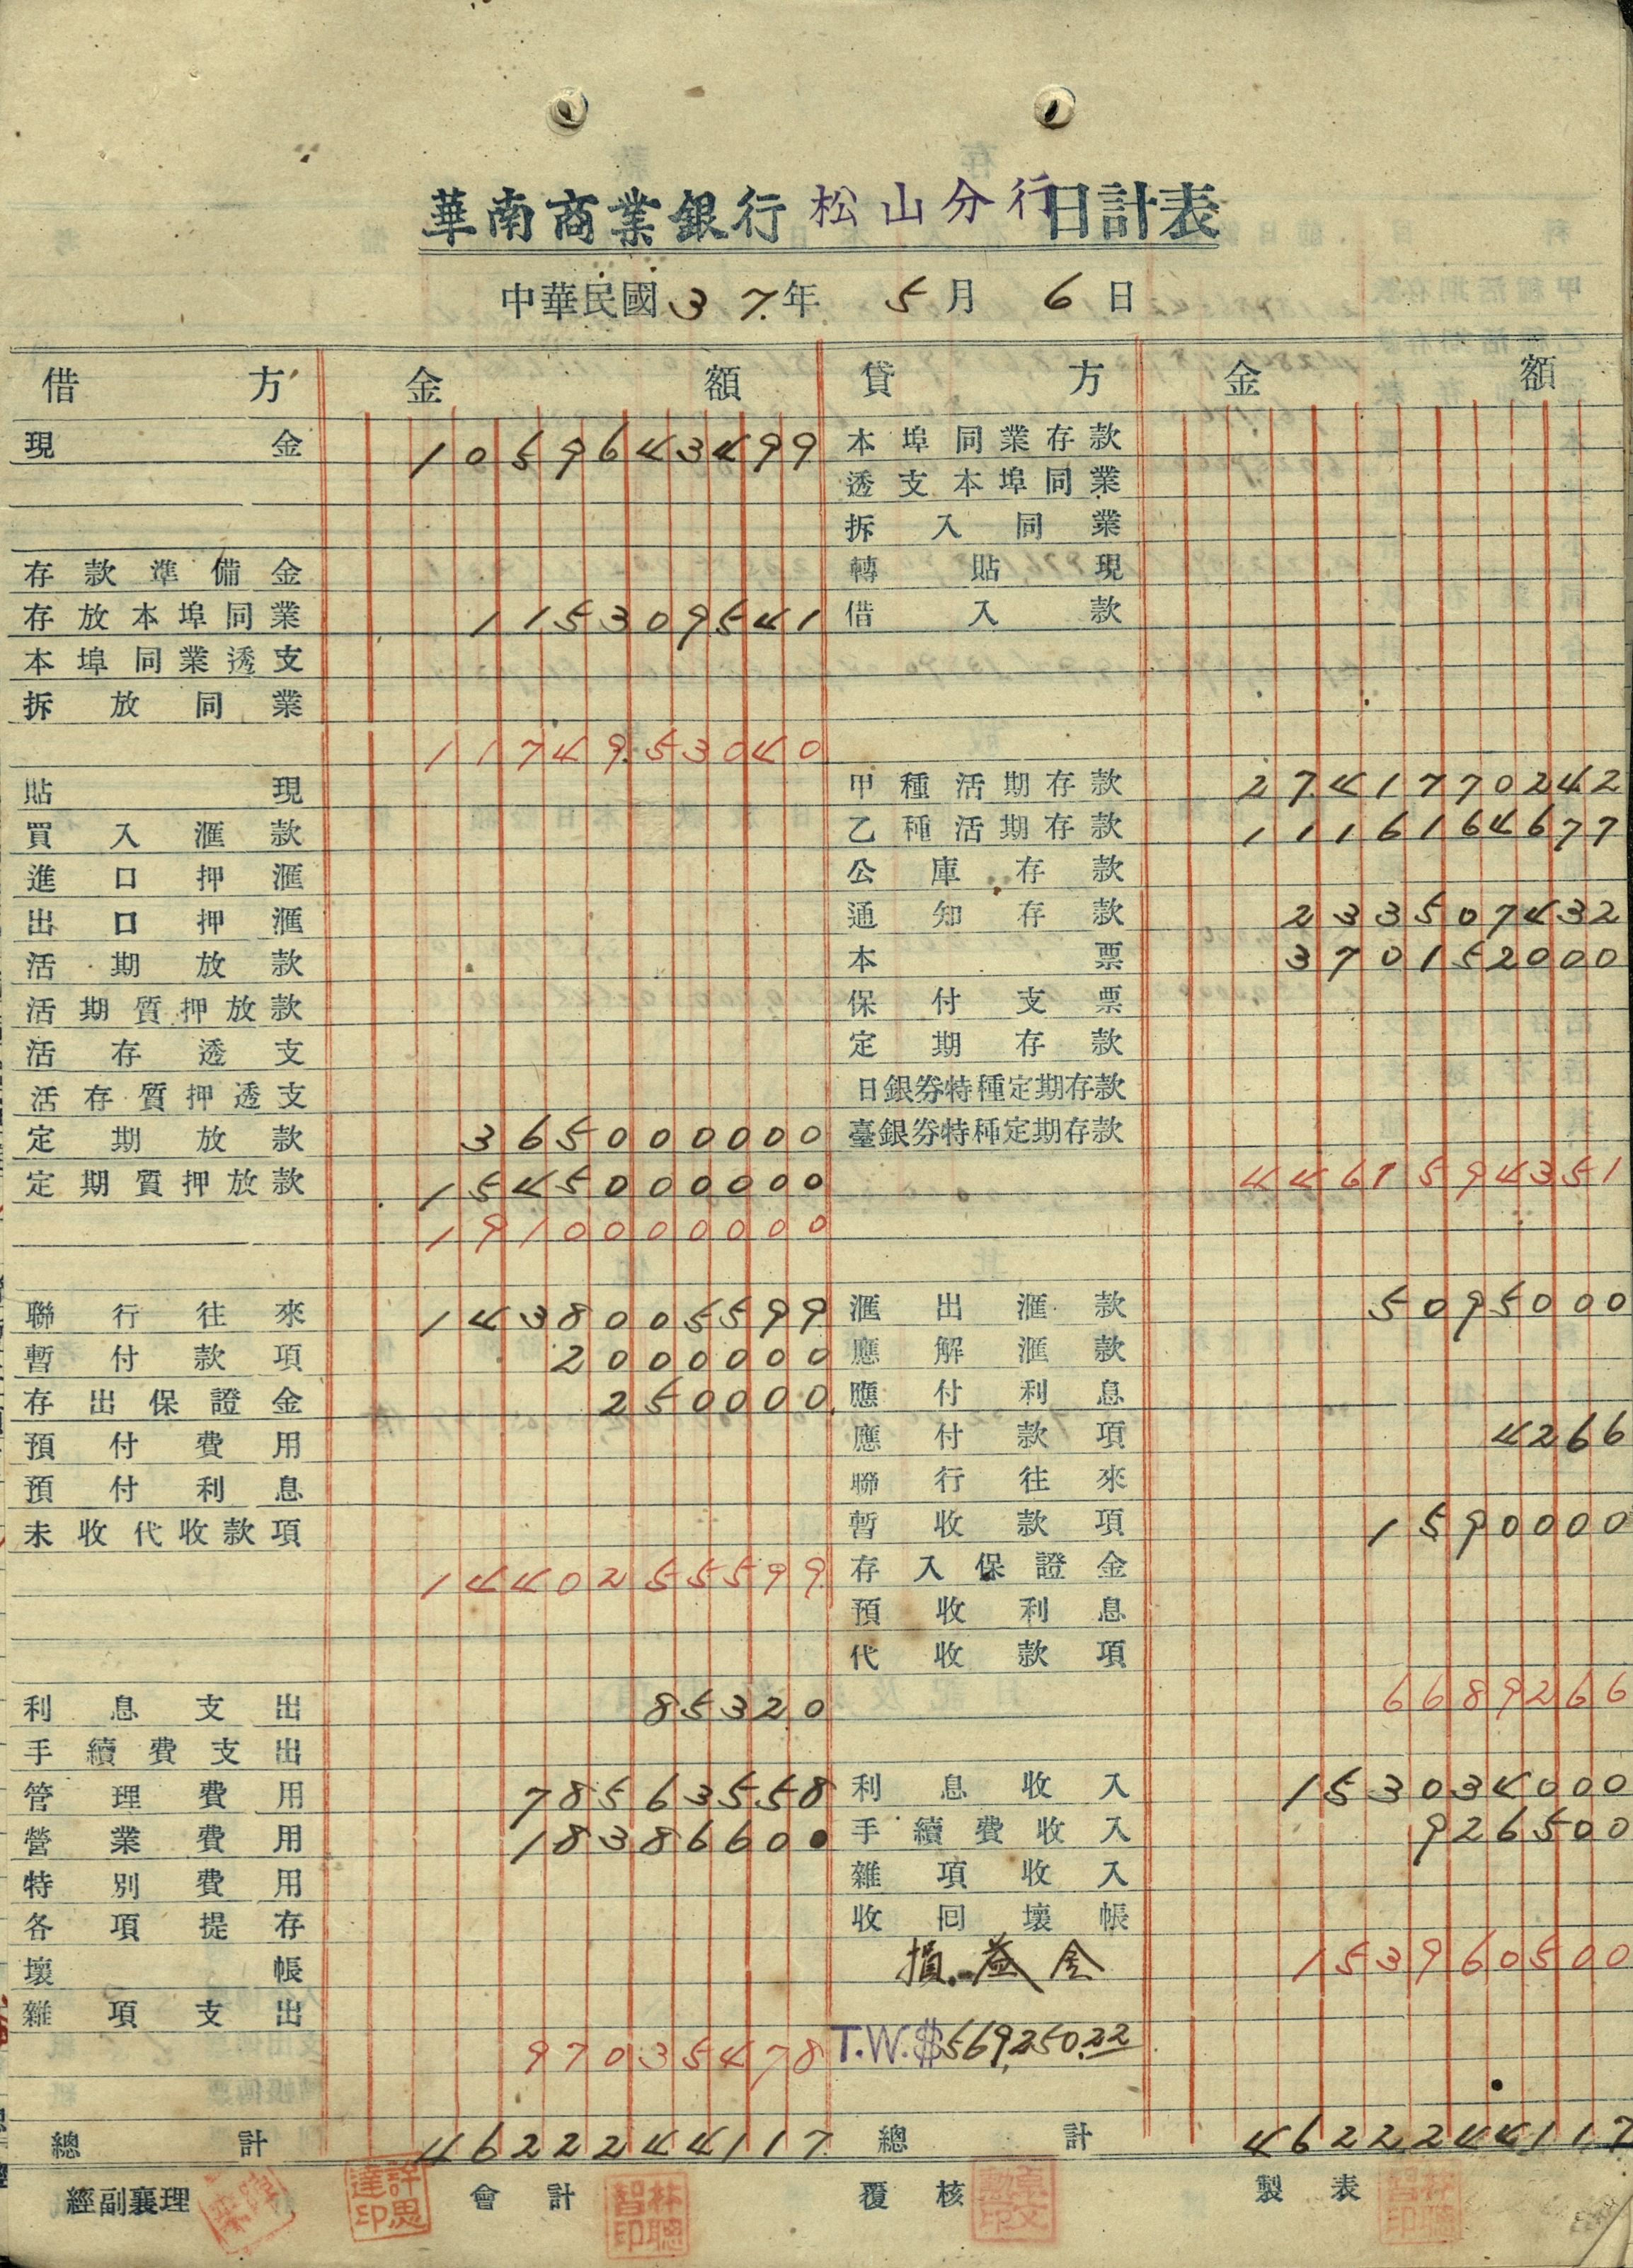 華南商業銀行 松山分行 日計表
中華民國37年 5月 6日
借方 金額 貸方 金額
現金 1059643499 本埠同業存款
透支本埠同業
拆入同業
存款準備金 轉貼現
存放本埠同業 115309541 借入款
本埠同業透支
拆放同業
1174953040
貼現 甲種活期存款 2741770242
買入滙款 乙種活期存款 1116164677
進口押滙 公庫存款
出口押滙 通知存款 233507432
活期放款 本票 370152000
活期質押放款 保付支票
活存透支 定期存款
活存質押透支 日銀券特種定期存款
定期放款 365000000 臺銀券特種定期存款
定期質押放款 1545000000 4461594351
1910000000
聯行往來 1438005599 滙出滙款 5095000
暫付款項 2000000 應解滙款
存出保證金 250000 應付利息
預付費用 應付款項 4266
預付利息 聯行往來
未收代收款項 暫收款項 1590000
1440255599 存入保證金
預收利息
代收款項
利息支出 85320 6689266
手續費支出
管理費用 78563558 利息收入 153034000
營業費用 18386600 手續費收入 926500
特別費用 雜項收入
各項提存 收回壞帳
壞帳 損益金 153960500
雜項支出
97035478 T.W.$569,250.22
總計 4622244117 總計 4622244117
經副襄理 許思達印 會計 林聰智印 覆核 製表 林聰智印